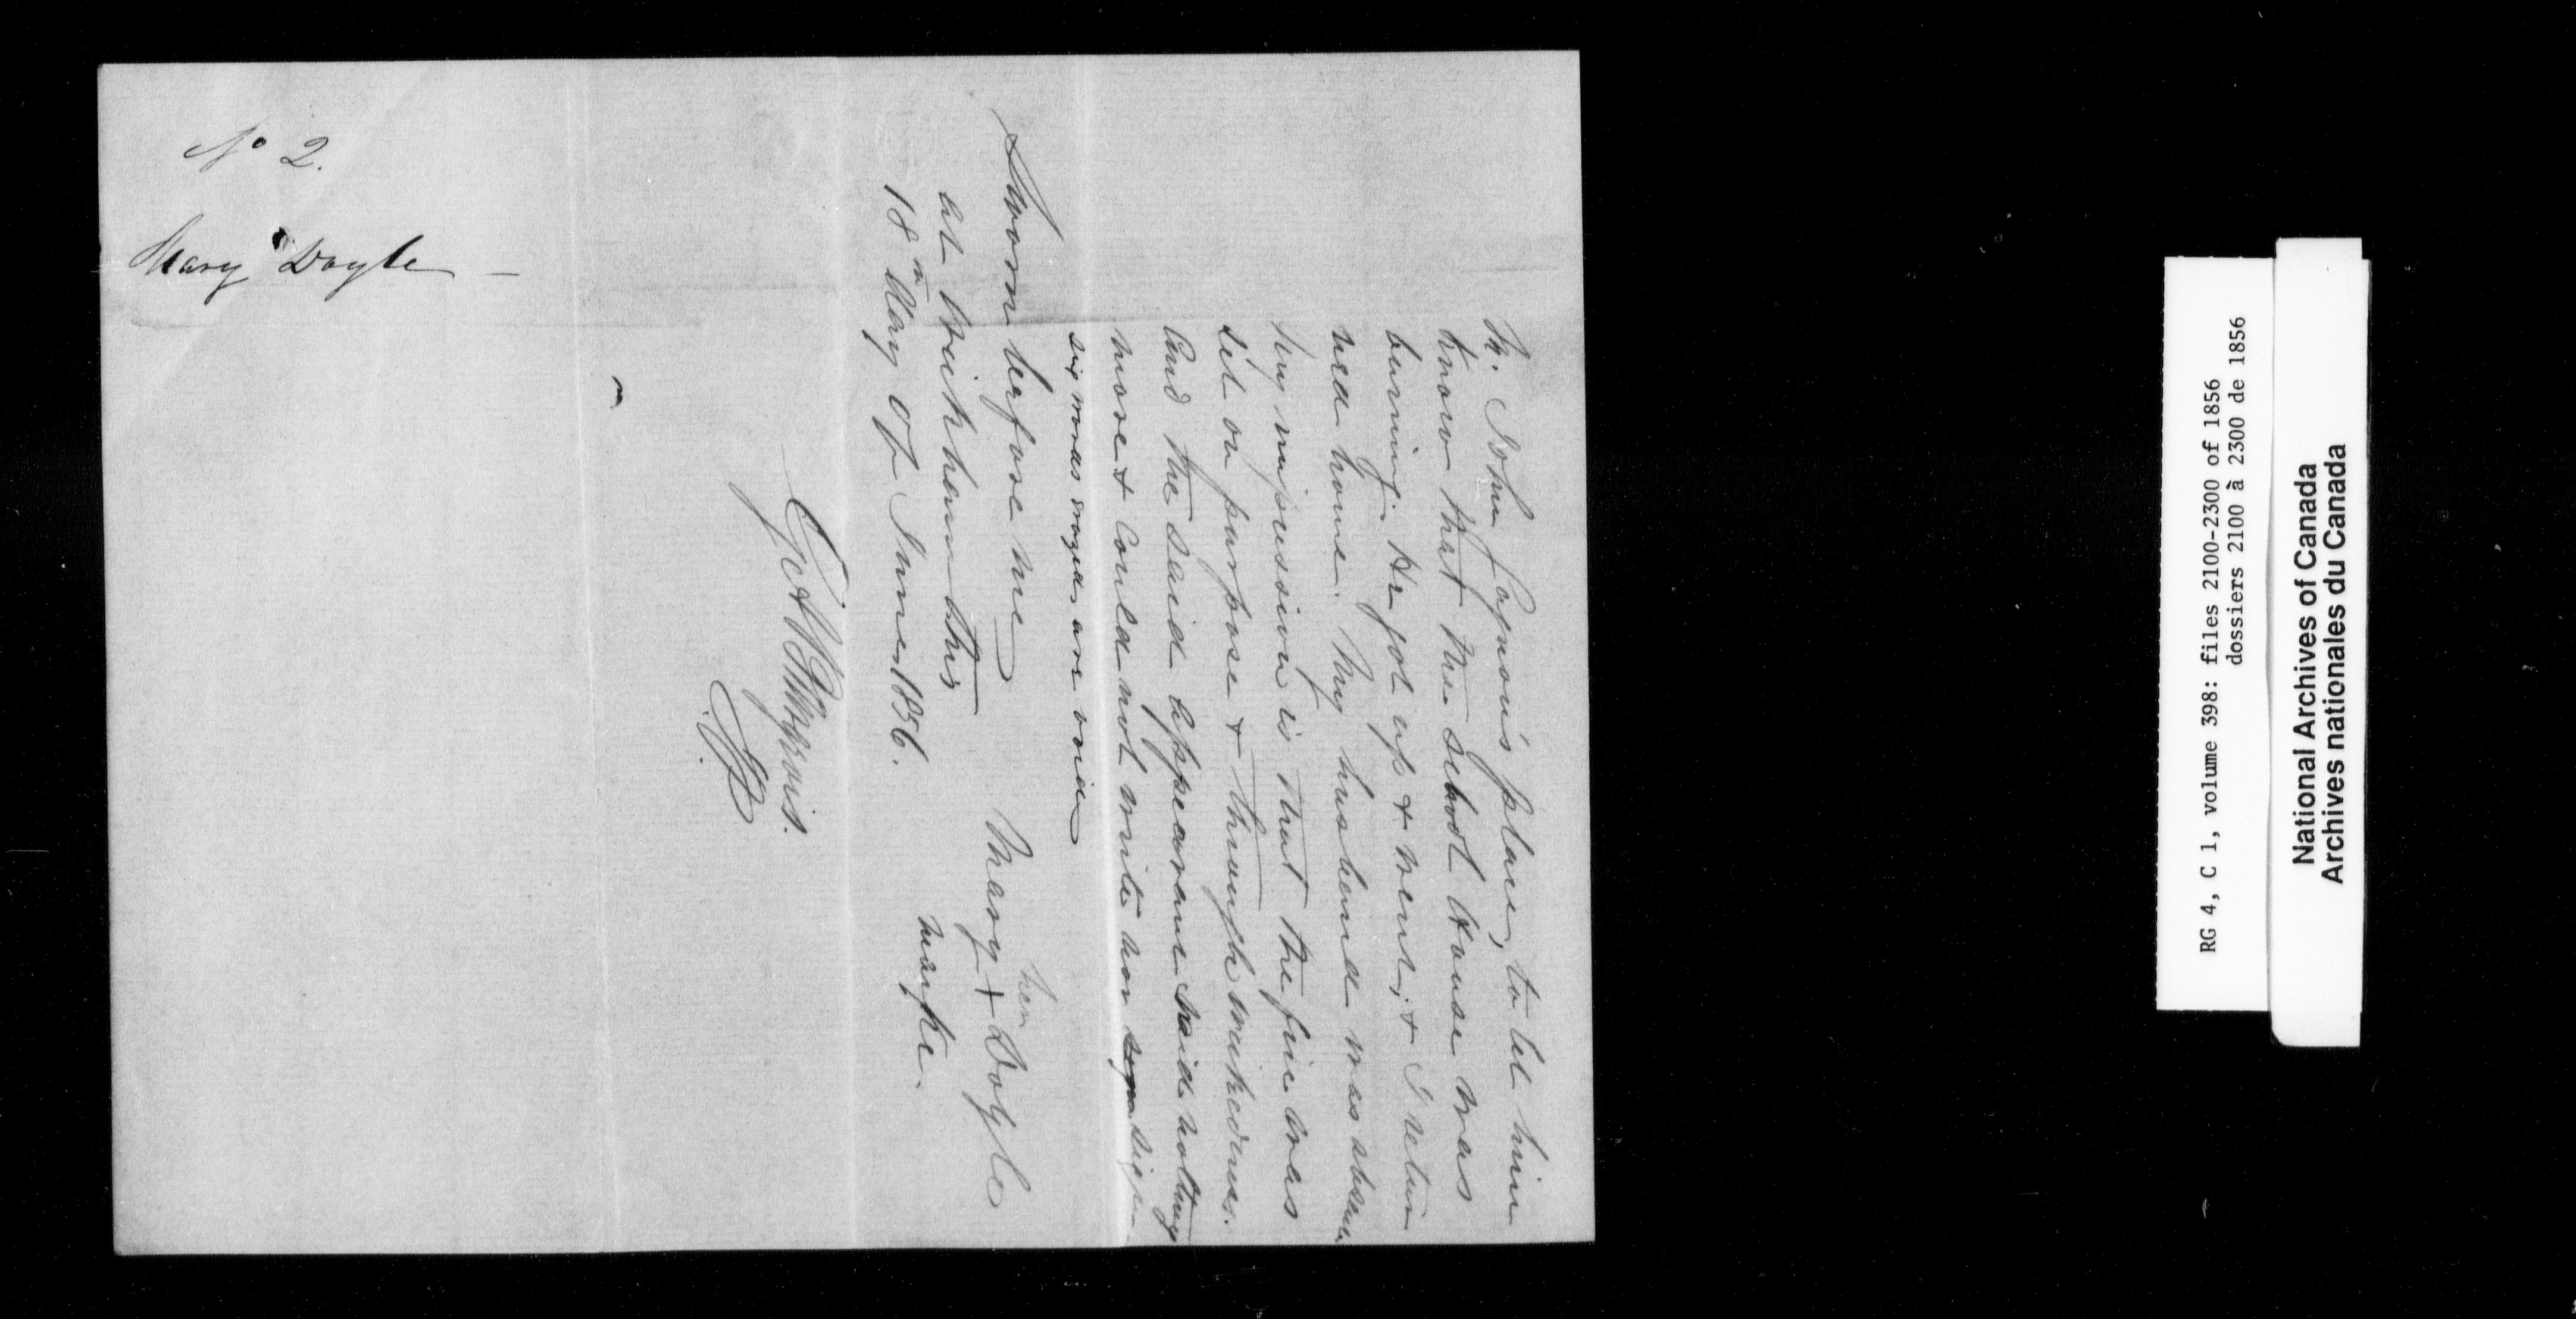 Mr. John Cagnon's place, to let him
know that the school House was
burning. He got up & went, & I retur
ned home. My husband was absent
My impression is that the fire was
set on purpose & through wickedness.
And the said appearant said nothing
more & Could not write nor sign
six words erazed are void
Sworn before me
at Wickham this
18th day of June 1856.
her
Mary + Doyle
marke.
J.P.
No 2.
Mary Doyle
RG 4, C 1, volume 398: files 2100-2300 of 1856
dossiers 2100 à 2300 de 1856
National Archives of Canada
Archives nationales du Canada